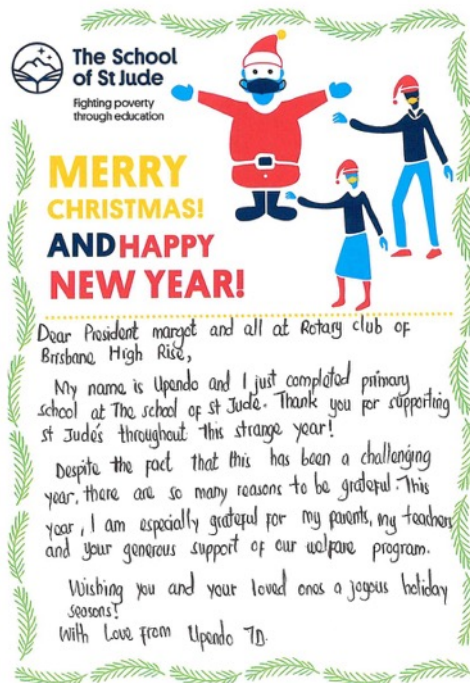 The School
of St Jude
Fighting poverty
through education
MERRY
CHRISTMAS!
AND HAPPY
NEW YEAR!
Dear President margot and all at Rotary club of
Brisbane High Rise,
My name is Upendo and I just completed primary
school at The school of st Jude. Thank you for supporting
st Jude's throughout this strange year!
Despite the fact that this has been a challenging
year, there are so many reasons to be grateful. This
year, I am especially grateful for my parents, my teachers
and your generous support of our welfare program.
Wishing you and your loved ones a joyous holiday
seasons!
With Love from Upendo 7D.